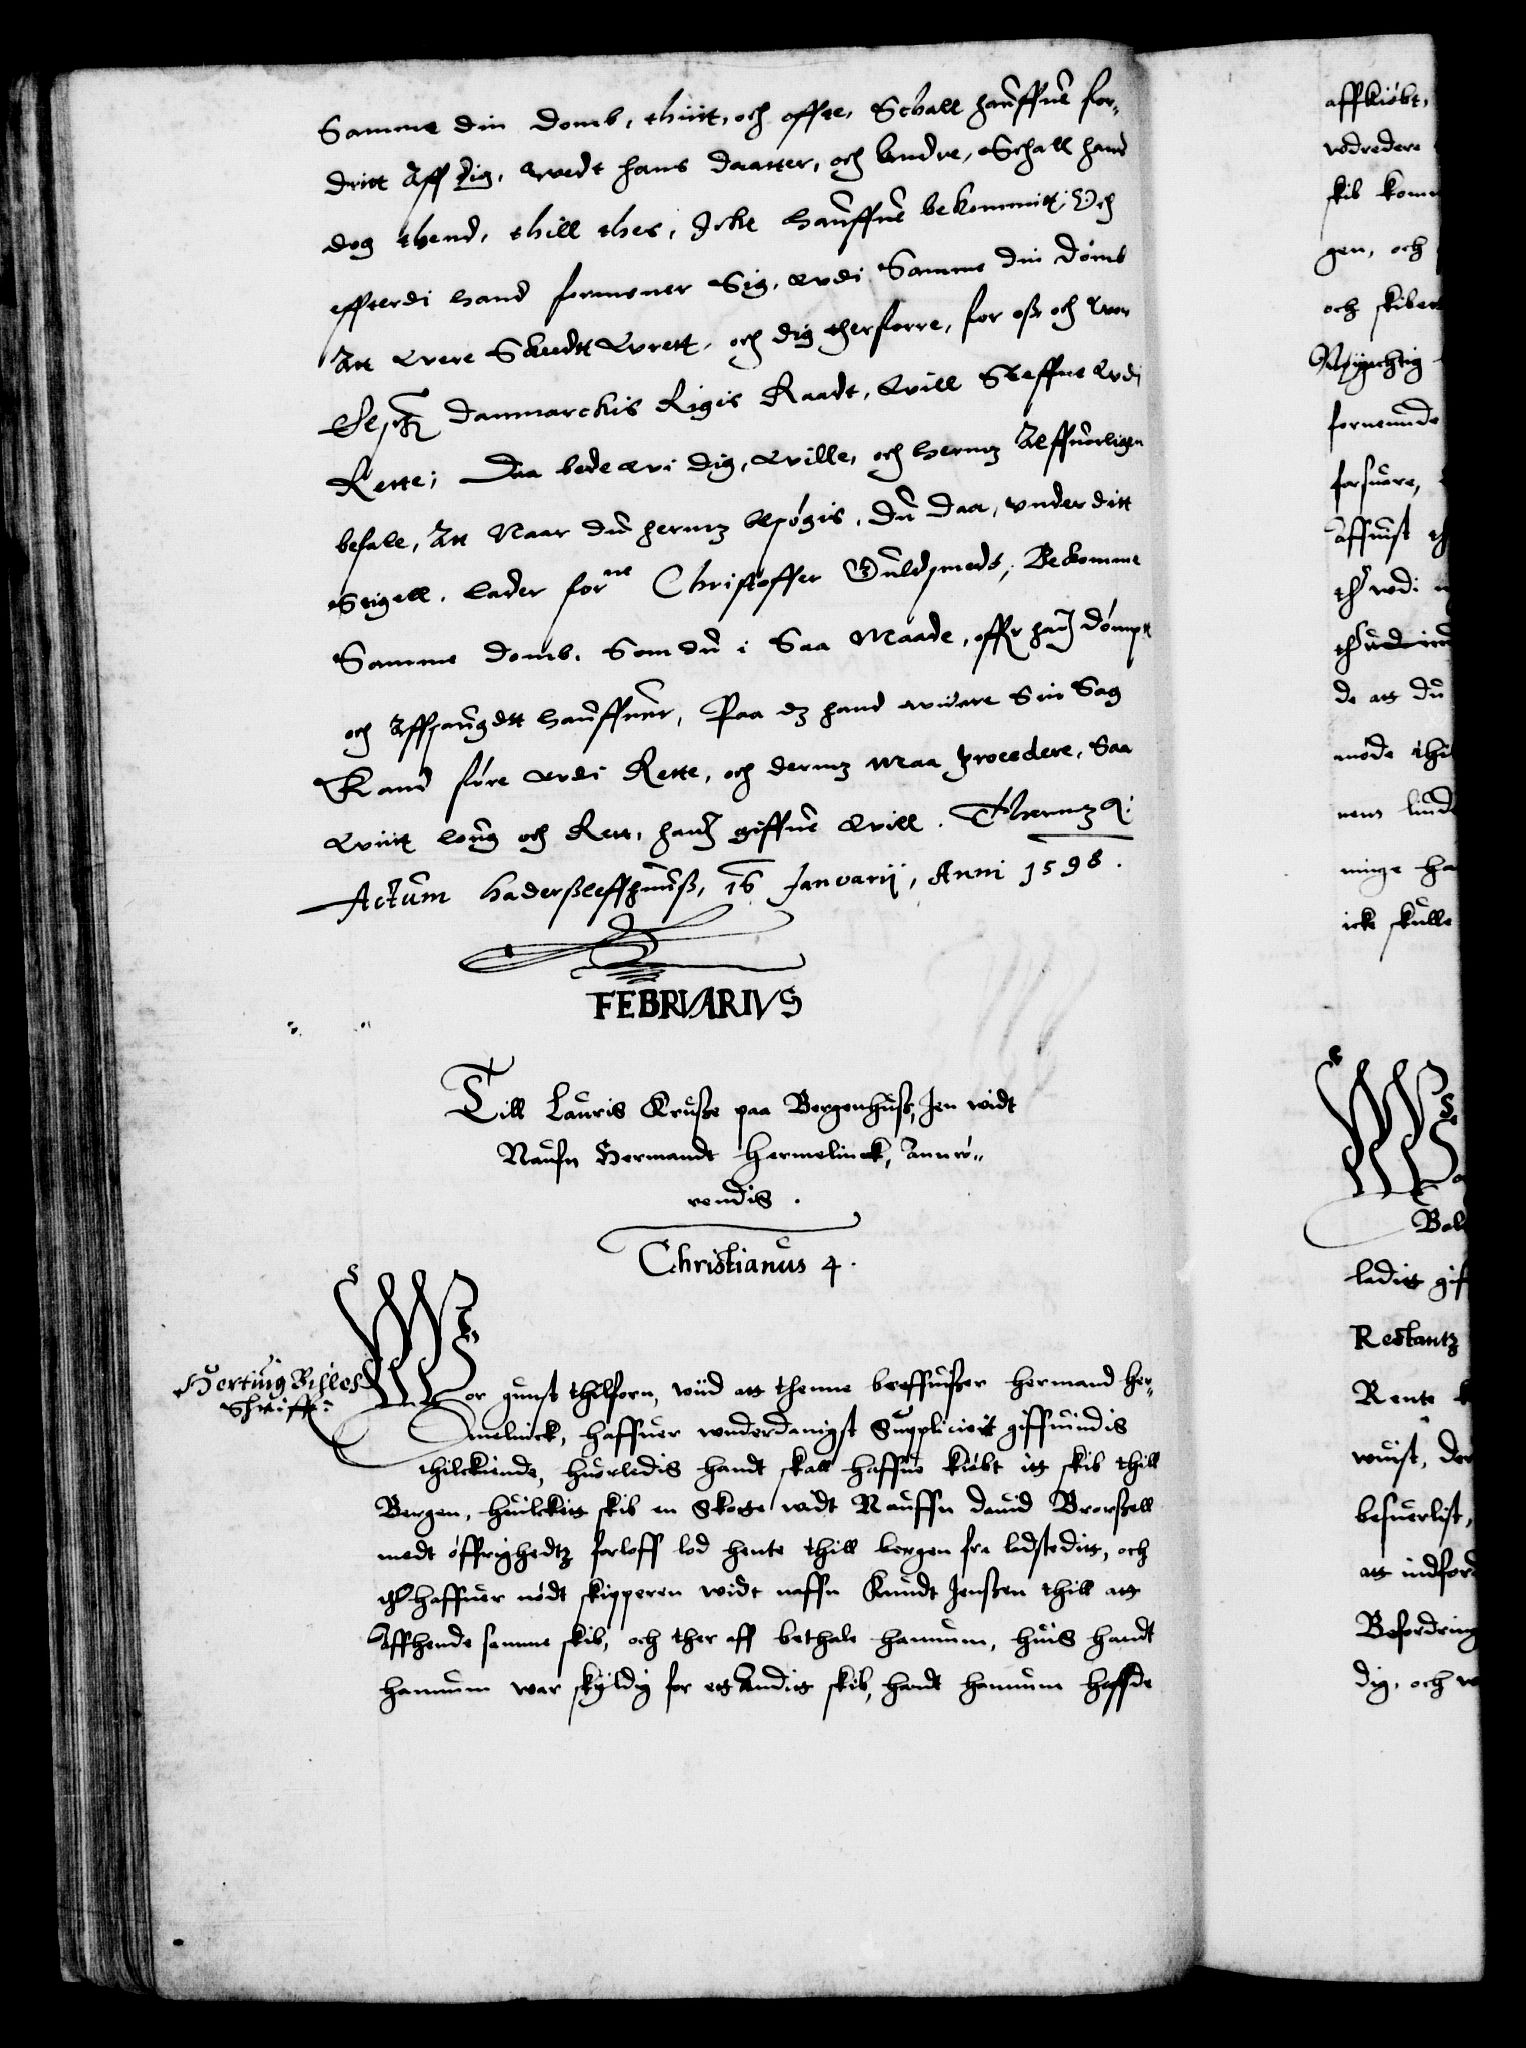 Samme din domb, thiitt, och offte, Schall hauffue for-
dritt Aff dig, wedt hans daatter, och Andre, Schall hand
dog thend, thill thes, Icke hauffue bekommitt; Och
effterdi hand formener Sig, wdi Samme din domb
Att were Skeedt Wrett, och dig therforre, for oß och wor
danmarckis Rigis Raadt, will Steffne wdi
Rette; Daa bede wi dig, wille, och hermz Alffuorligen
befale, Att Naar du hermz besøgis, du daa, under ditt
Seigell, lader forne Christoffer Guldsmeds, Bekomme
Samme domb, Som du i Saa Maade, offr hanß dømpt
och Affsaugdtt hauffuer, Paa dz hand widere Sin Sag
Kand føre wdi Rette, och dermz maa procedere, Saa
wiitt loug och Rett, hanß giffue will. Thermz &:
Actum Haderßleffhuuß, 16 Januarij, Anni 1598.
FEBRVARIVS
Till Lauris Krußе paa Bergenhuß, Jen widt
Naufn Hermandt Hermelinck, Annrö-
rendis.
Christianus 4.
Hertuig Bisles
Schrifft:
Wor gunst thilforn, wiid att thenne breffuißer Hermand Her-
melinck, haffuer wnderdanigst Supplicierit giffuindis
thilckiende, huorledis handt skall haffue kiøbt itt skib thill
Bergen, huilckitt skib en Skotte widt Nauffn Dauid Brorßell
medt öffrighedtz forloff lod hente thill bergen fra ladsteditt, och
thr haffuer nödt skipperen widt naffn Knudt Jenßen thill att
Affhende samme skib, och ther aff bethale hannum, huis handt
hannum war skyldig for ett Anditt skib, handt hannum haffde
affkiøbt,
wdredere
skib
gen, och
och
forsuare,
de att du
mode
ninge
icke skulle
laditt
Restantz
Rente
wiist,
besuerlist,
att
Befordring
dig, och